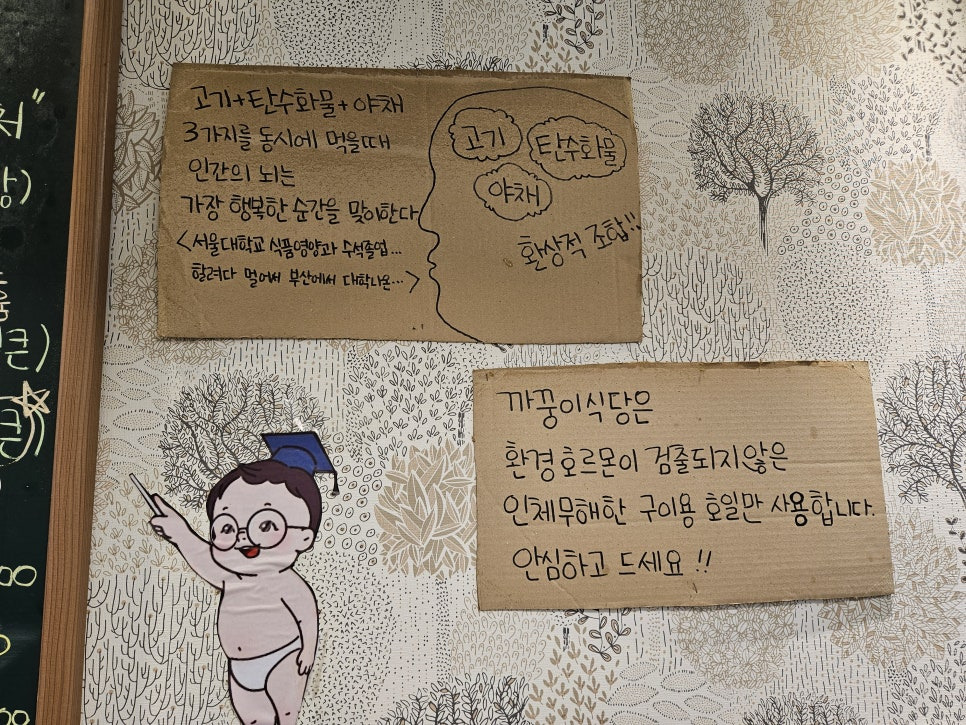 고기+탄수화물+야채
3가지를 동시에 먹을때
인간의 뇌는
가장 행복한 순간을 맞이한다
<서울대학교 식품영양과 수석졸업...
할려다 멀어서 부산에서 대학나온...>
고기
탄수화물
야채
환상적 조합!!
까꿍이식당은
환경호르몬이 검출되지않은
인체무해한 구이용 호일만 사용합니다.
안심하고 드세요!!
큰)
큰)
00
00